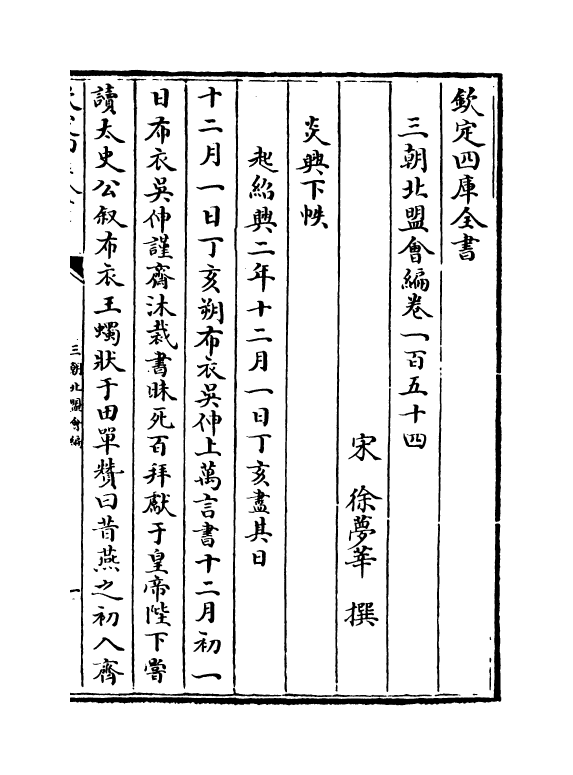 欽定四庫全書
三朝北盟會編卷一百五十四
宋　徐夢莘　撰
炎興下帙
起紹興二年十二月一日丁亥盡其日
十二月一日丁亥朔布衣吳伸上萬言書十二月初一
日布衣吳伸謹齋沐裁書昧死百拜獻于皇帝陛下嘗
讀太史公叙布衣王蠋狀于田單贊曰昔燕之初入齊
三朝北盟會編
一